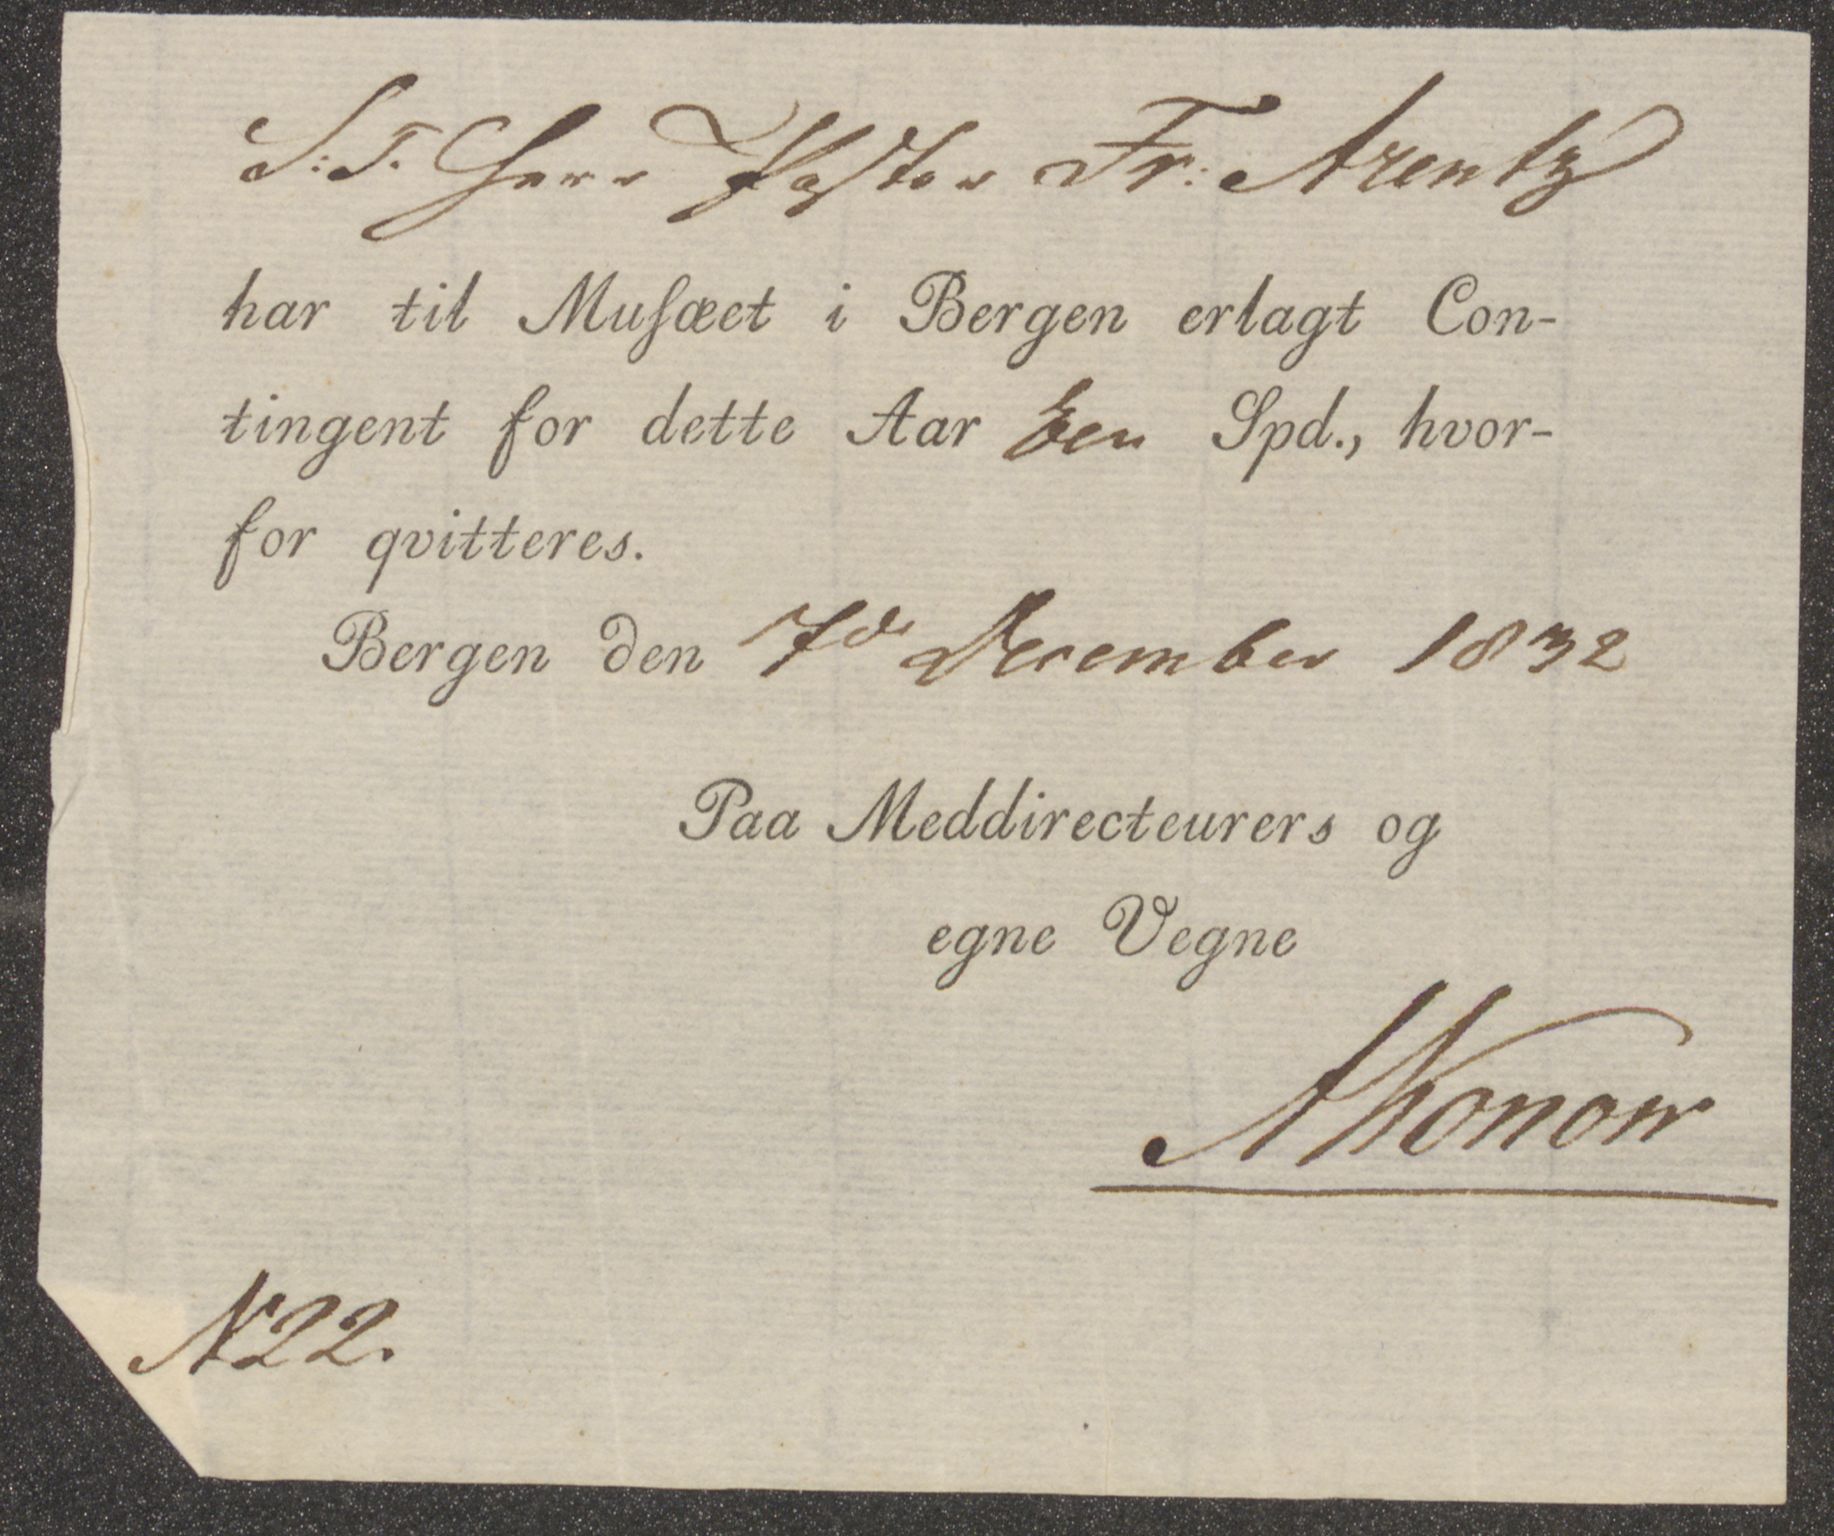 S: T. Herr Pastor Fr: Arentz
har til Musæet i Bergen erlagt Con-
tingent for dette Aar Een Spd., hvor-
for qvitteres.
Bergen den 7de December 1832
Paa Meddirecteurers og
egne Vegne
AKonow
N22.